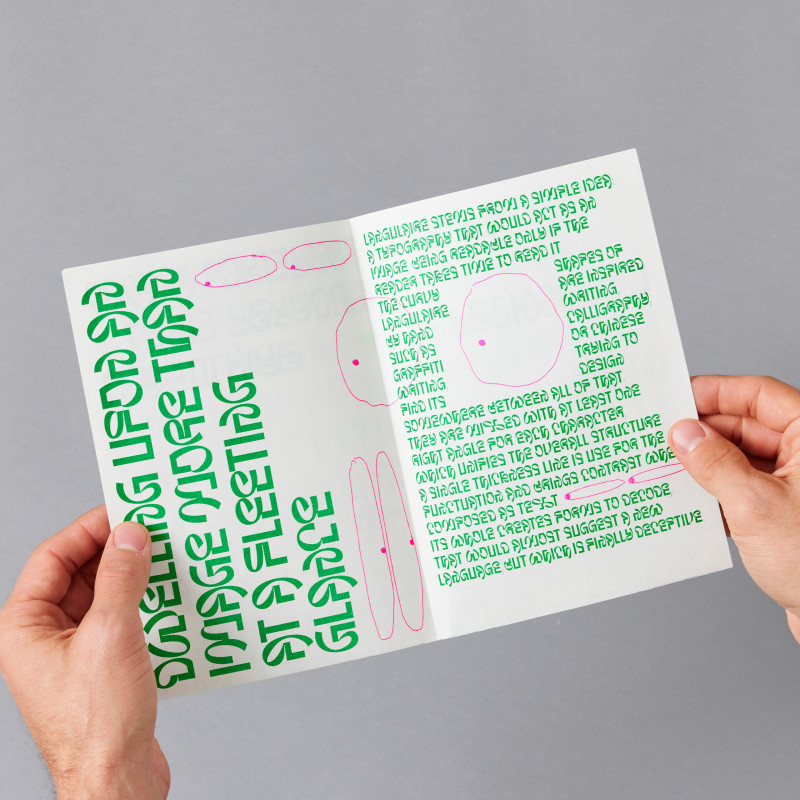 DWELLING UPON AN
IMAGE MORE THAN
AT A FLEETING
GLANCE
LANGULAIRE STEMS FROM A SIMPLE IDEA
A TYPOGRAPHY THAT WOULD ACT AS AN
IMAGE BEING READABLE ONLY IF THE
READER TAKES TIME TO READ IT
THE CURVY SHAPES OF
LANGULAIRE ARE INSPIRED
BY HAND WRITING
SUCH AS CALLIGRAPHY
GRAFFITI OR CHINESE
WRITING TRYING TO
FIND ITS DESIGN
SOMEWHERE BETWEEN ALL OF THAT
THEY ARE MIXED WITH AT LEAST ONE
RIGHT ANGLE FOR EACH CHARACTER
WHICH UNIFIES THE OVERALL STRUCTURE
A SINGLE THICKNESS LINE IS USE FOR THE
PUNCTUATION AND BRINGS CONTRAST WHEN
COMPOSED AS TEXT
ITS WHOLE CREATES FORMS TO DECODE
THAT WOULD ALMOST SUGGEST A NEW
LANGUAGE BUT WHICH IS FINALLY DECEPTIVE